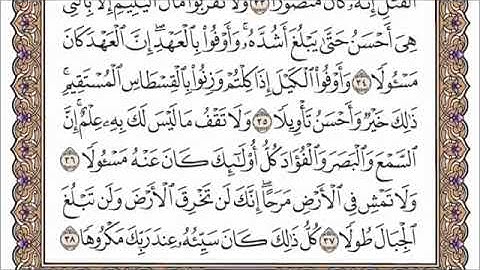 ٱلۡقَتۡلِ إِنَّهُۥ كَانَ مَنصُورٗا ٣٣ وَلَا تَقۡرَبُواْ مَالَ ٱلۡيَتِيمِ إِلَّا بِٱلَّتِي
هِيَ أَحۡسَنُ حَتَّىٰ يَبۡلُغَ أَشُدَّهُۥۚ وَأَوۡفُواْ بِٱلۡعَهۡدِۖ إِنَّ ٱلۡعَهۡدَ كَانَ
مَسۡـُٔولٗا ٣٤ وَأَوۡفُواْ ٱلۡكَيۡلَ إِذَا كِلۡتُمۡ وَزِنُواْ بِٱلۡقِسۡطَاسِ ٱلۡمُسۡتَقِيمِۚ
ذَٰلِكَ خَيۡرٞ وَأَحۡسَنُ تَأۡوِيلٗا ٣٥ وَلَا تَقۡفُ مَا لَيۡسَ لَكَ بِهِۦ عِلۡمٌۚ إِنَّ
ٱلسَّمۡعَ وَٱلۡبَصَرَ وَٱلۡفُؤَادَ كُلُّ أُوْلَٰٓئِكَ كَانَ عَنۡهُ مَسۡـُٔولٗا ٣٦
وَلَا تَمۡشِ فِي ٱلۡأَرۡضِ مَرَحًاۖ إِنَّكَ لَن تَخۡرِقَ ٱلۡأَرۡضَ وَلَن تَبۡلُغَ
ٱلۡجِبَالَ طُولٗا ٣٧ كُلُّ ذَٰلِكَ كَانَ سَيِّئُهُۥ عِندَ رَبِّكَ مَكۡرُوهٗا ٣٨